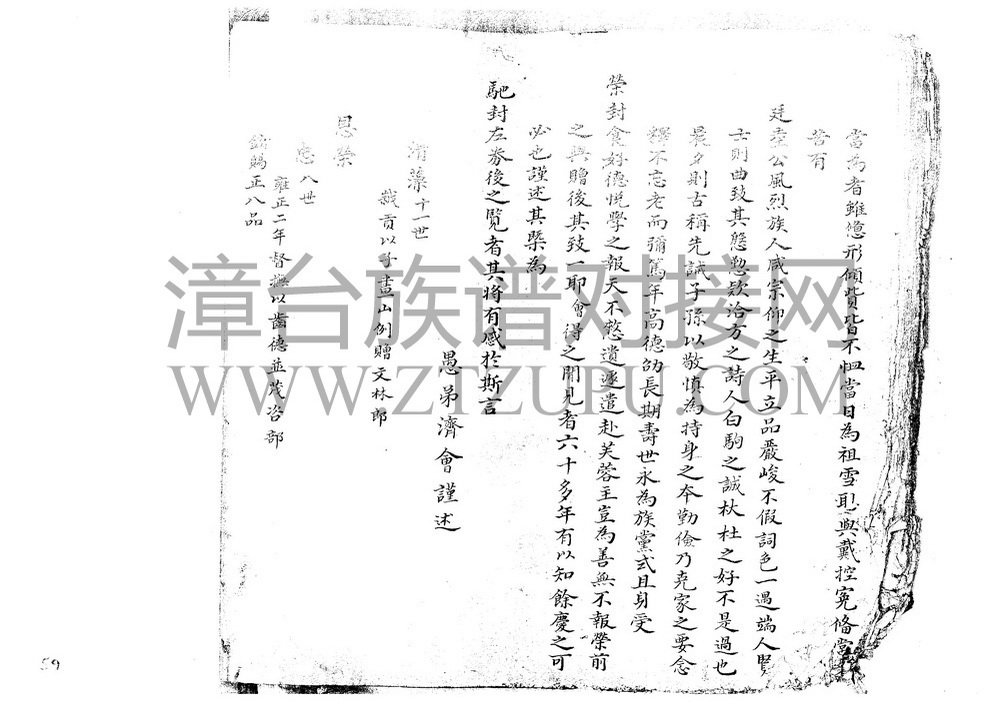 當為者雖憊形傾貲皆不恤當日為祖雪恥與戴控冤俻當
苦有
廷臺公風烈族人咸宗仰之生平立品嚴峻不假詞色一遇端人賢
士則曲致其慇懃欵洽方之詩人白駒之誠杕杜之好不是過也
晨夕則古稱先誡子孫以敬慎為持身之本勤儉乃克家之要念
釋不忘老而彌篤年高德劭長期壽世永為族黨式且身受
榮封食好德悅學之報天不憖遺遽遣赴芙蓉主豈為善無不報榮前
之與贈後其致一耶會得之聞見者六十多年有以知餘慶之可
必也謹述其槩為
馳封左劵後之覧者其將有感於斯言
愚弟濟會謹述
清藻十一世
歲貢以子畫山例贈文林郎
恩榮
忠八世
雍正二年督撫以齒德並茂咨部
欽賜正八品
漳台族谱对接网
WWW.ZTZUPU.COM
59